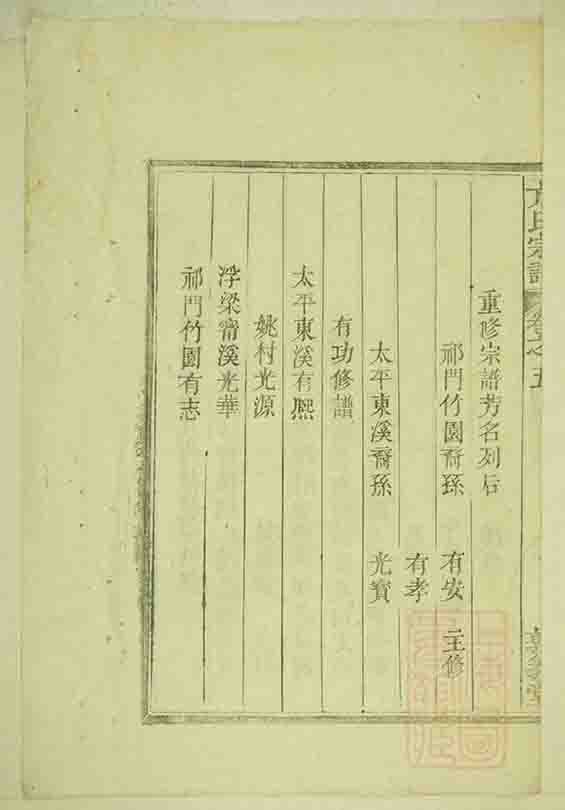 重修宗譜芳名列后
祁門竹園裔孫 有安 主修
有孝
太平東溪裔孫 光寳
有功修譜
太平東溪有熈
姚村光源
浮梁甯溪光華
祁門竹園有志
氏宗譜 卷之五